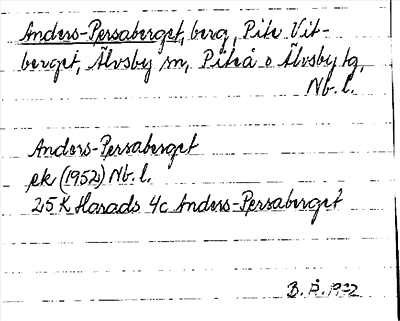 Anders-Persaberget, berg, Pite Vit-
berget, Älvsby sn, Piteå o Älvsby tg,
Nb. l.
Anders-Persaberget
ek (1952) Nb. l.
25K Harads 4c Anders-Persaberget
B. P. 1932